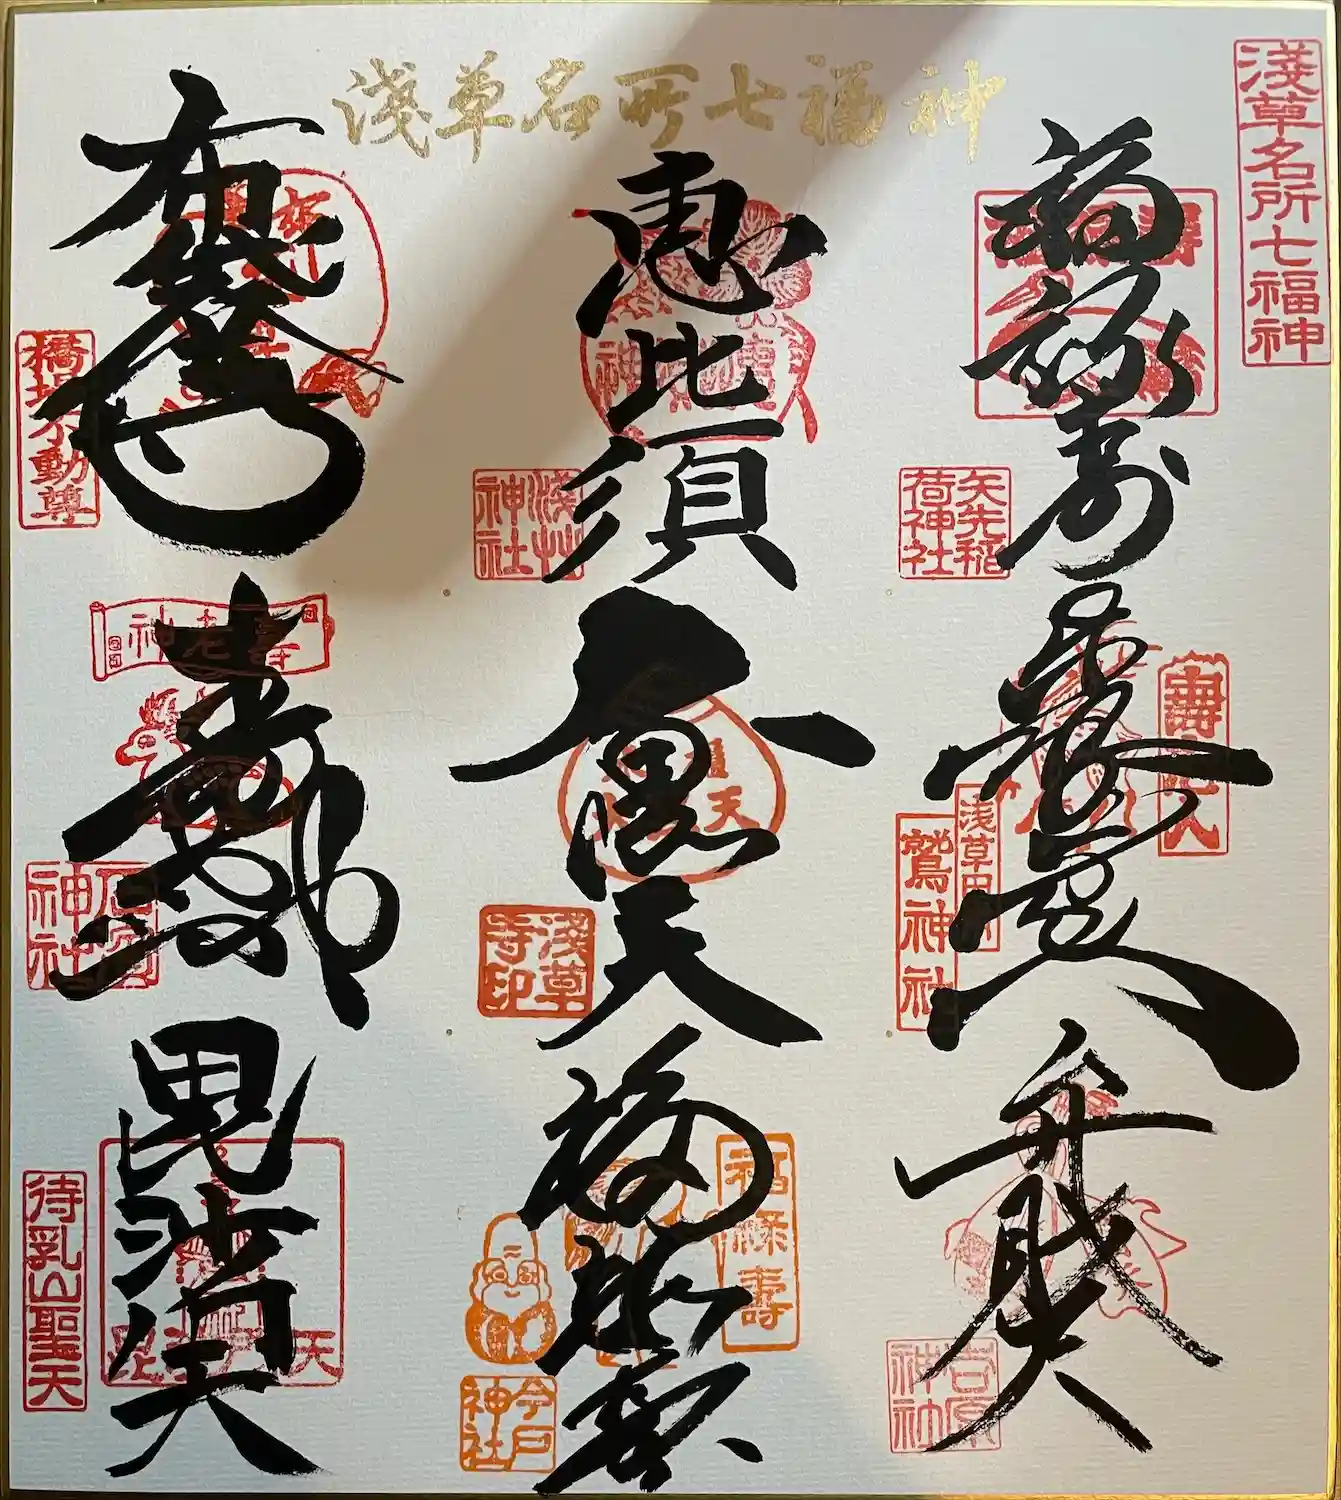 淺草名所七福神
淺草名所七福神
福禄寿
矢先稲
荷神社
寿老人
浅草田甫
鷲神社
弁財天
吉原
神社
恵比須
淺草
神社
大黒天
淺草
寺印
福禄寿
福禄壽
今戸
神社
布袋尊
橋場不動尊
寿老神
寿老神
石浜
神社
毘沙門天
毘沙門天
待乳山聖天